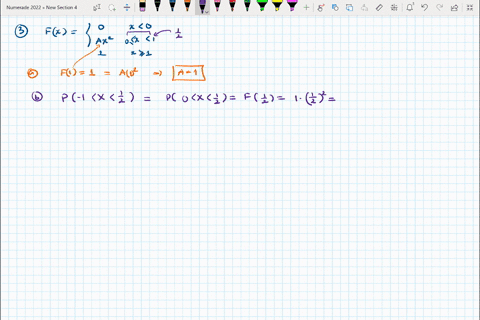 Numerade 2022 » New Section 4
③ F(x) = { 0 x < 0
Ax² 0 ≤ x < 1 ½
1 x ≥ 1
ⓐ F(1) = 1 = A(1)² ⇒ A = 1
ⓑ P(-1 < X < ½) = P(0 < X < ½) = F(½) = 1·(½)² =